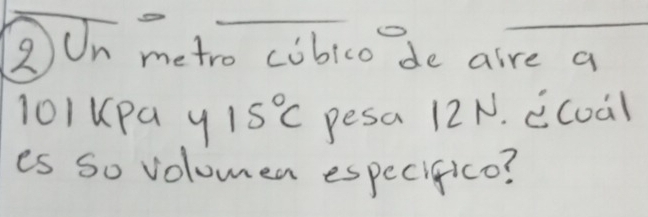 ② Un metro cúbico de aire a
101 KPa y 15°C pesa 12 N. ¿Cuál
es so volumen especifico?